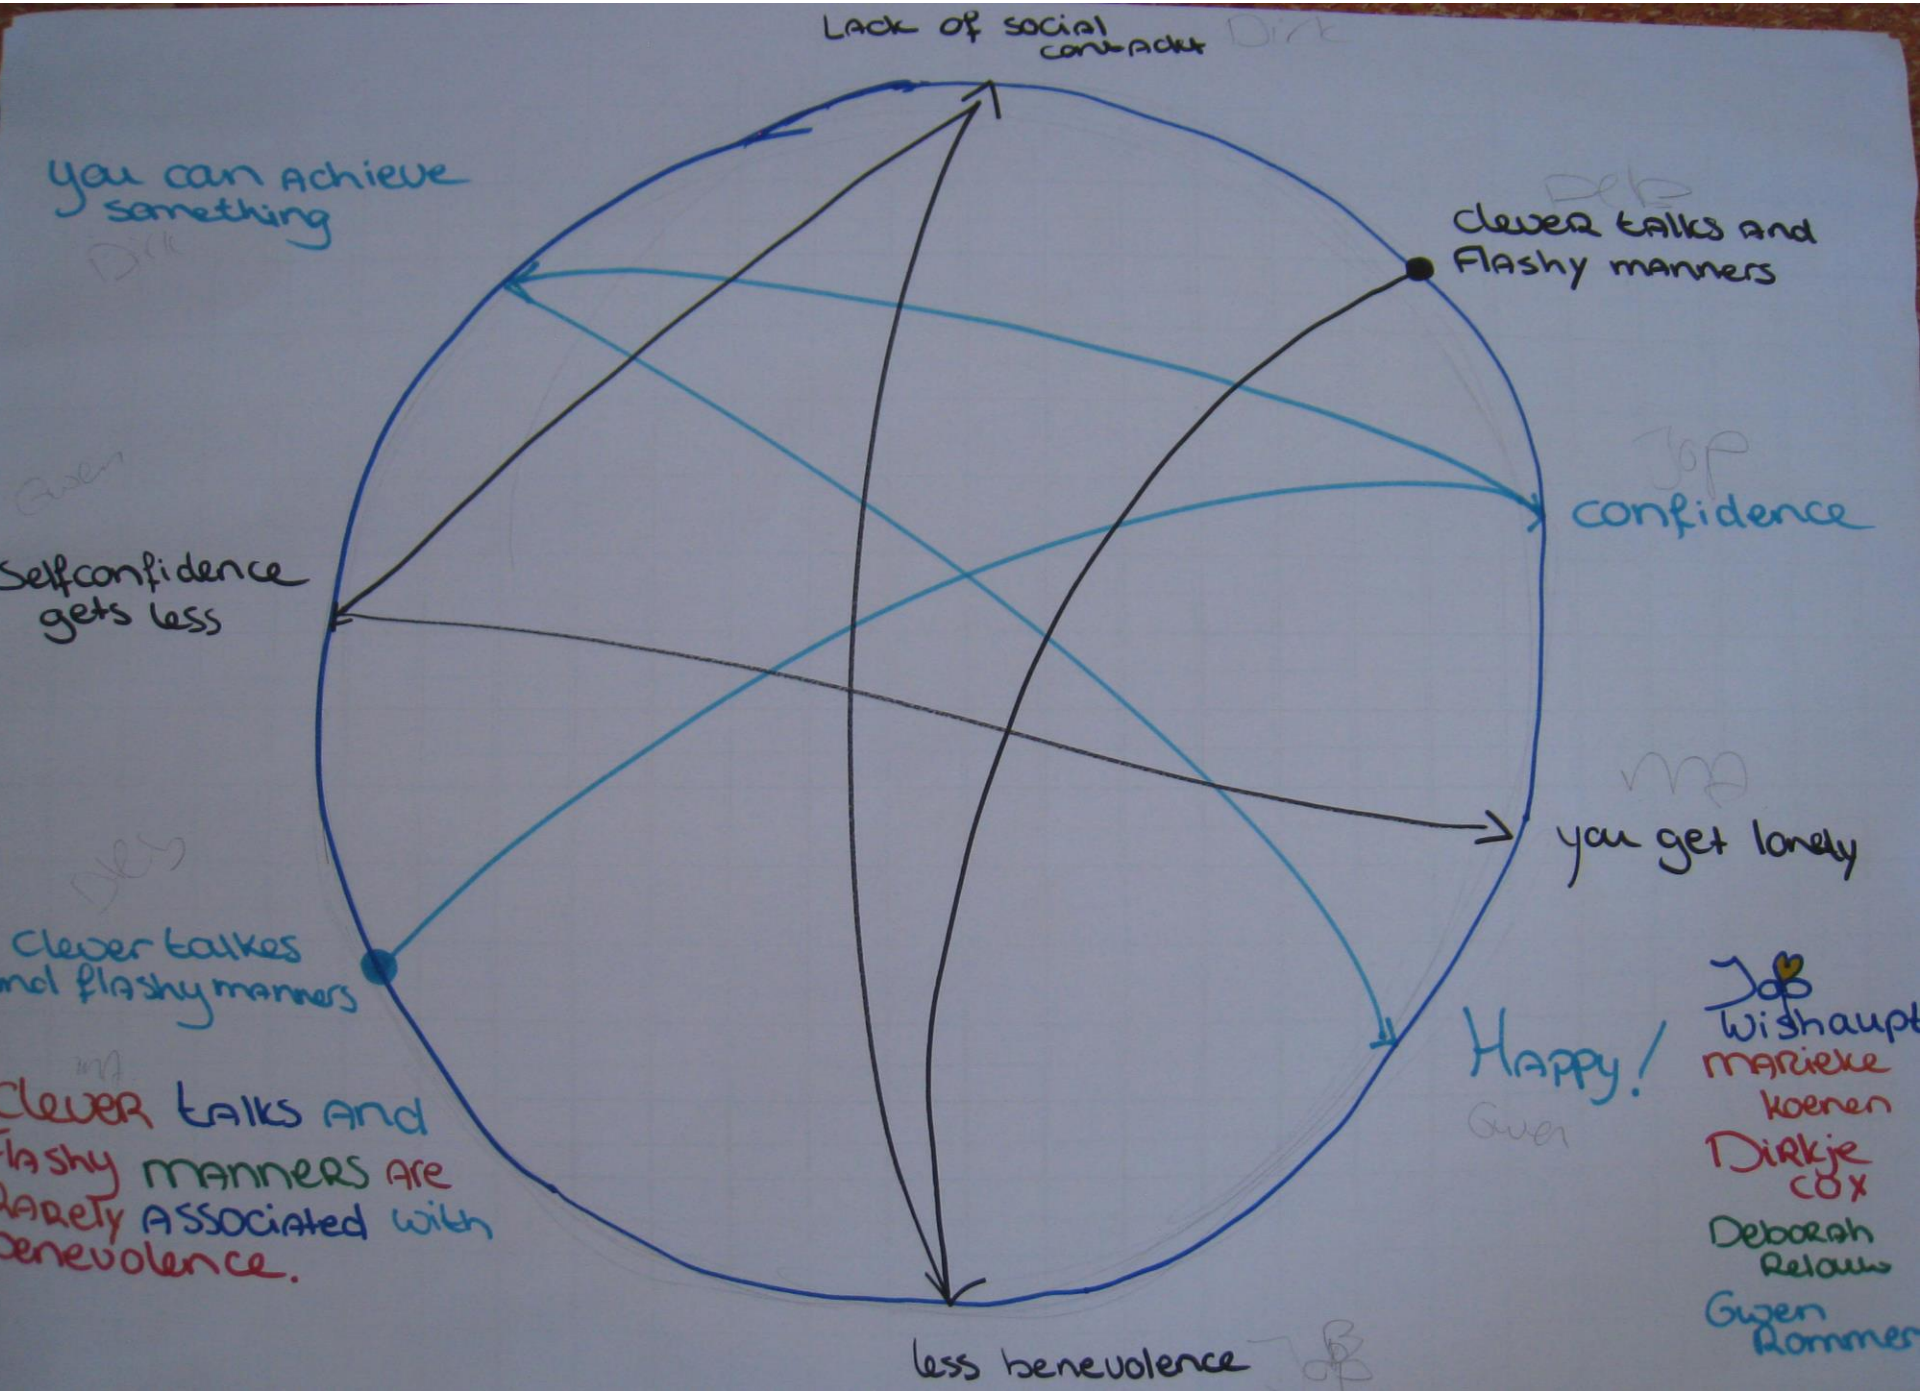 Lack of social
contackt
Dirk
you can achieve
something
Dirk
Deb
Clever talks and
Flashy manners
Job
confidence
Gwen
Selfconfidence
gets less
MA
you get lonely
Clever talkes
nd flashy manners
Happy!
Gwen
MA
Clever talks and
lashy manners are
rarety associated with
benevolence.
Job
Wishaupt
Marieke
Koenen
Dirkje
Cox
Deborah
Relouw
Gwen
Rommer
less benevolence
Job